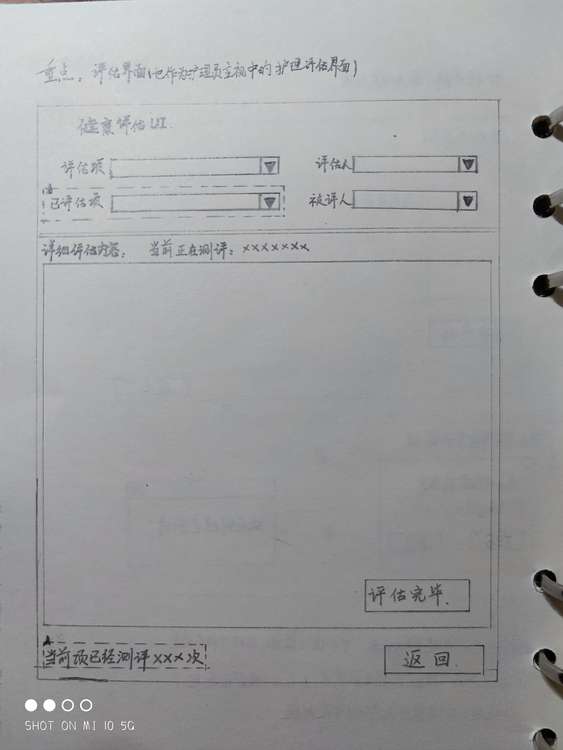 重点：评估界面(也作为护理员主视中的护理评估界面)
健康评估UI
评估项
评估人
已评估项
被评人
详细评估内容：当前正在测评：xxxxxxx
评估完毕.
当前项已经测评xxx次
返回.
SHOT ON MI 10 5G